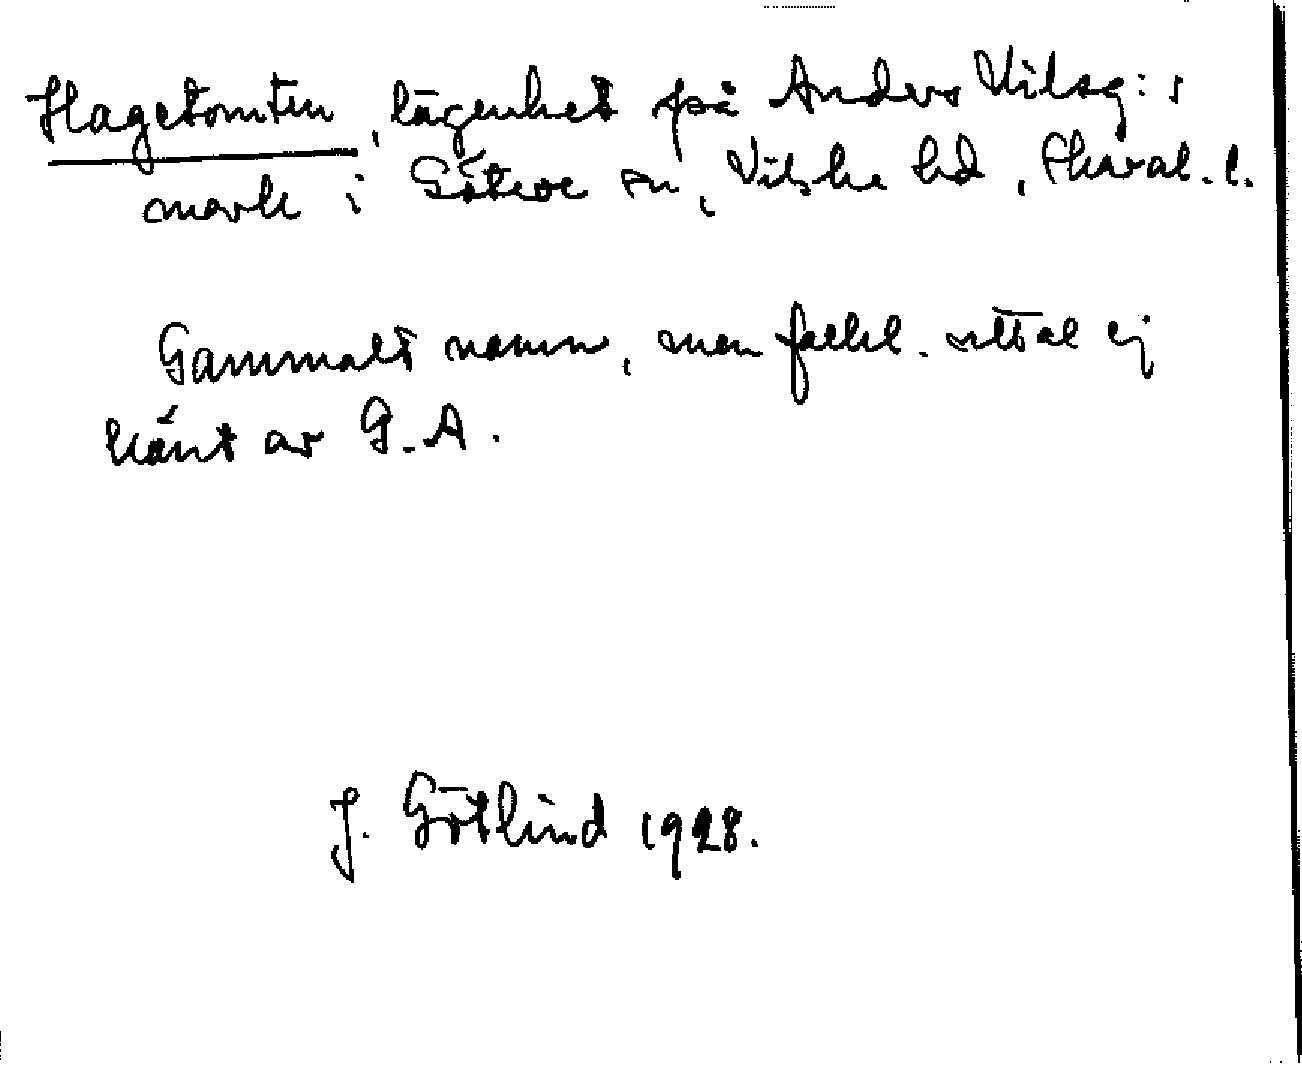 Hagetomten, lägenhet på Anders Nilsg:s
mark i Göteve sn, Vilske hd, Skarab. l.
Gammalt namn, men folkl. uttal ej
känt av G.A.
J. Götlind 1928.